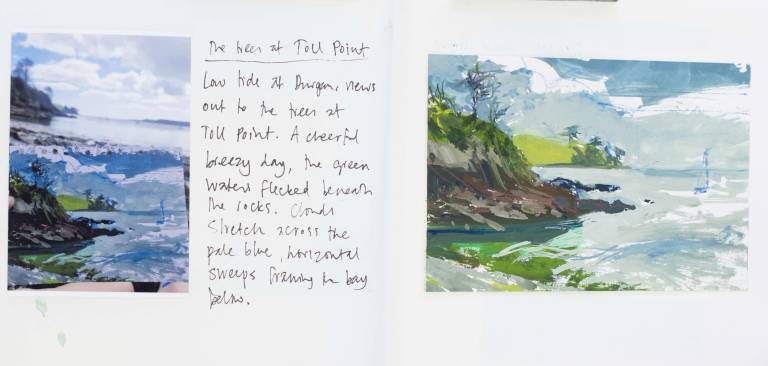 The trees at Toll Point
Low tide at Durgan, views
out to the trees at
Toll Point. A cheerful
breezy day, the green
waters flecked beneath
the rocks. Clouds
stretch across the
pale blue, horizontal
sweeps framing the bay
below.